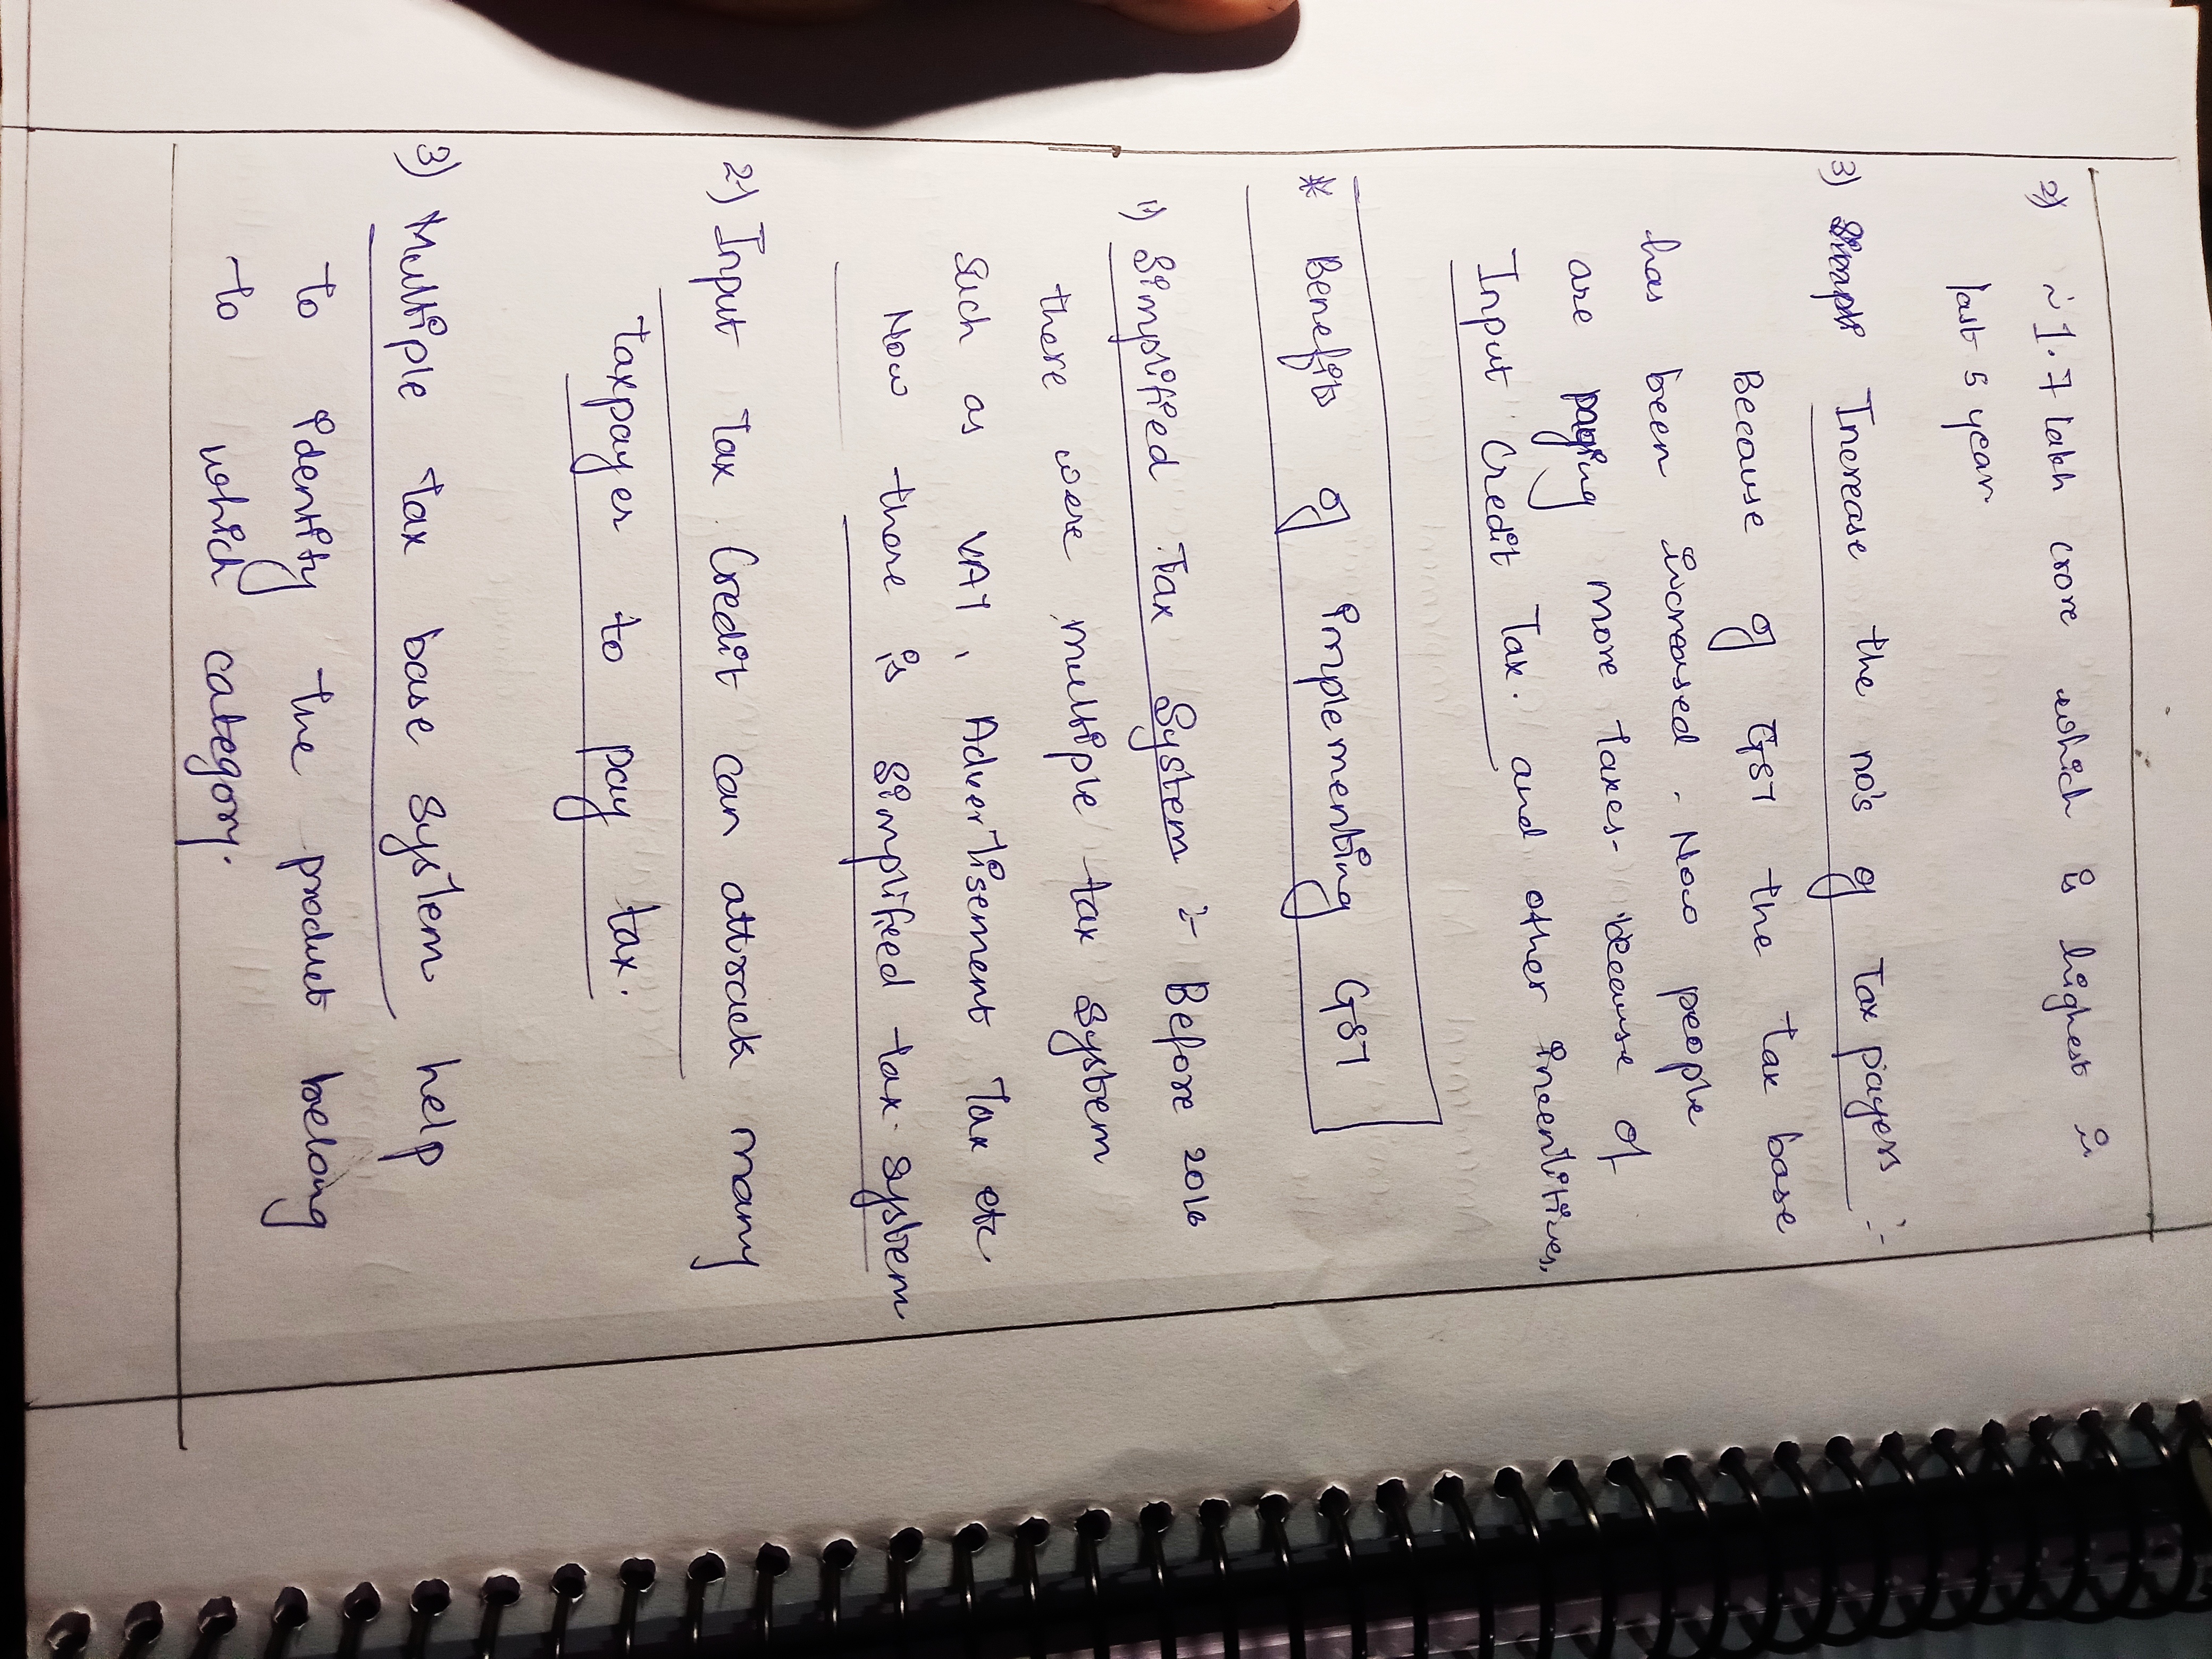 2) ~ 1.7 lakh crore which is highest in
last 5 year
3) Increase the no's of Tax payers :-
Because of GST the tax base
has been increased. Now people
are paying more taxes. because of
Input Credit Tax. and other incentitives.
* Benefits of implementing GST
1) Simplified Tax System :- Before 2016
there were multiple tax system
Such as VAT, Advertisement Tax etc
Now there is simplified tax system
2) Input Tax Credit can attrack many
taxpayer to pay tax.
3) Multiple tax base system help
to identity the product belong
to which category.